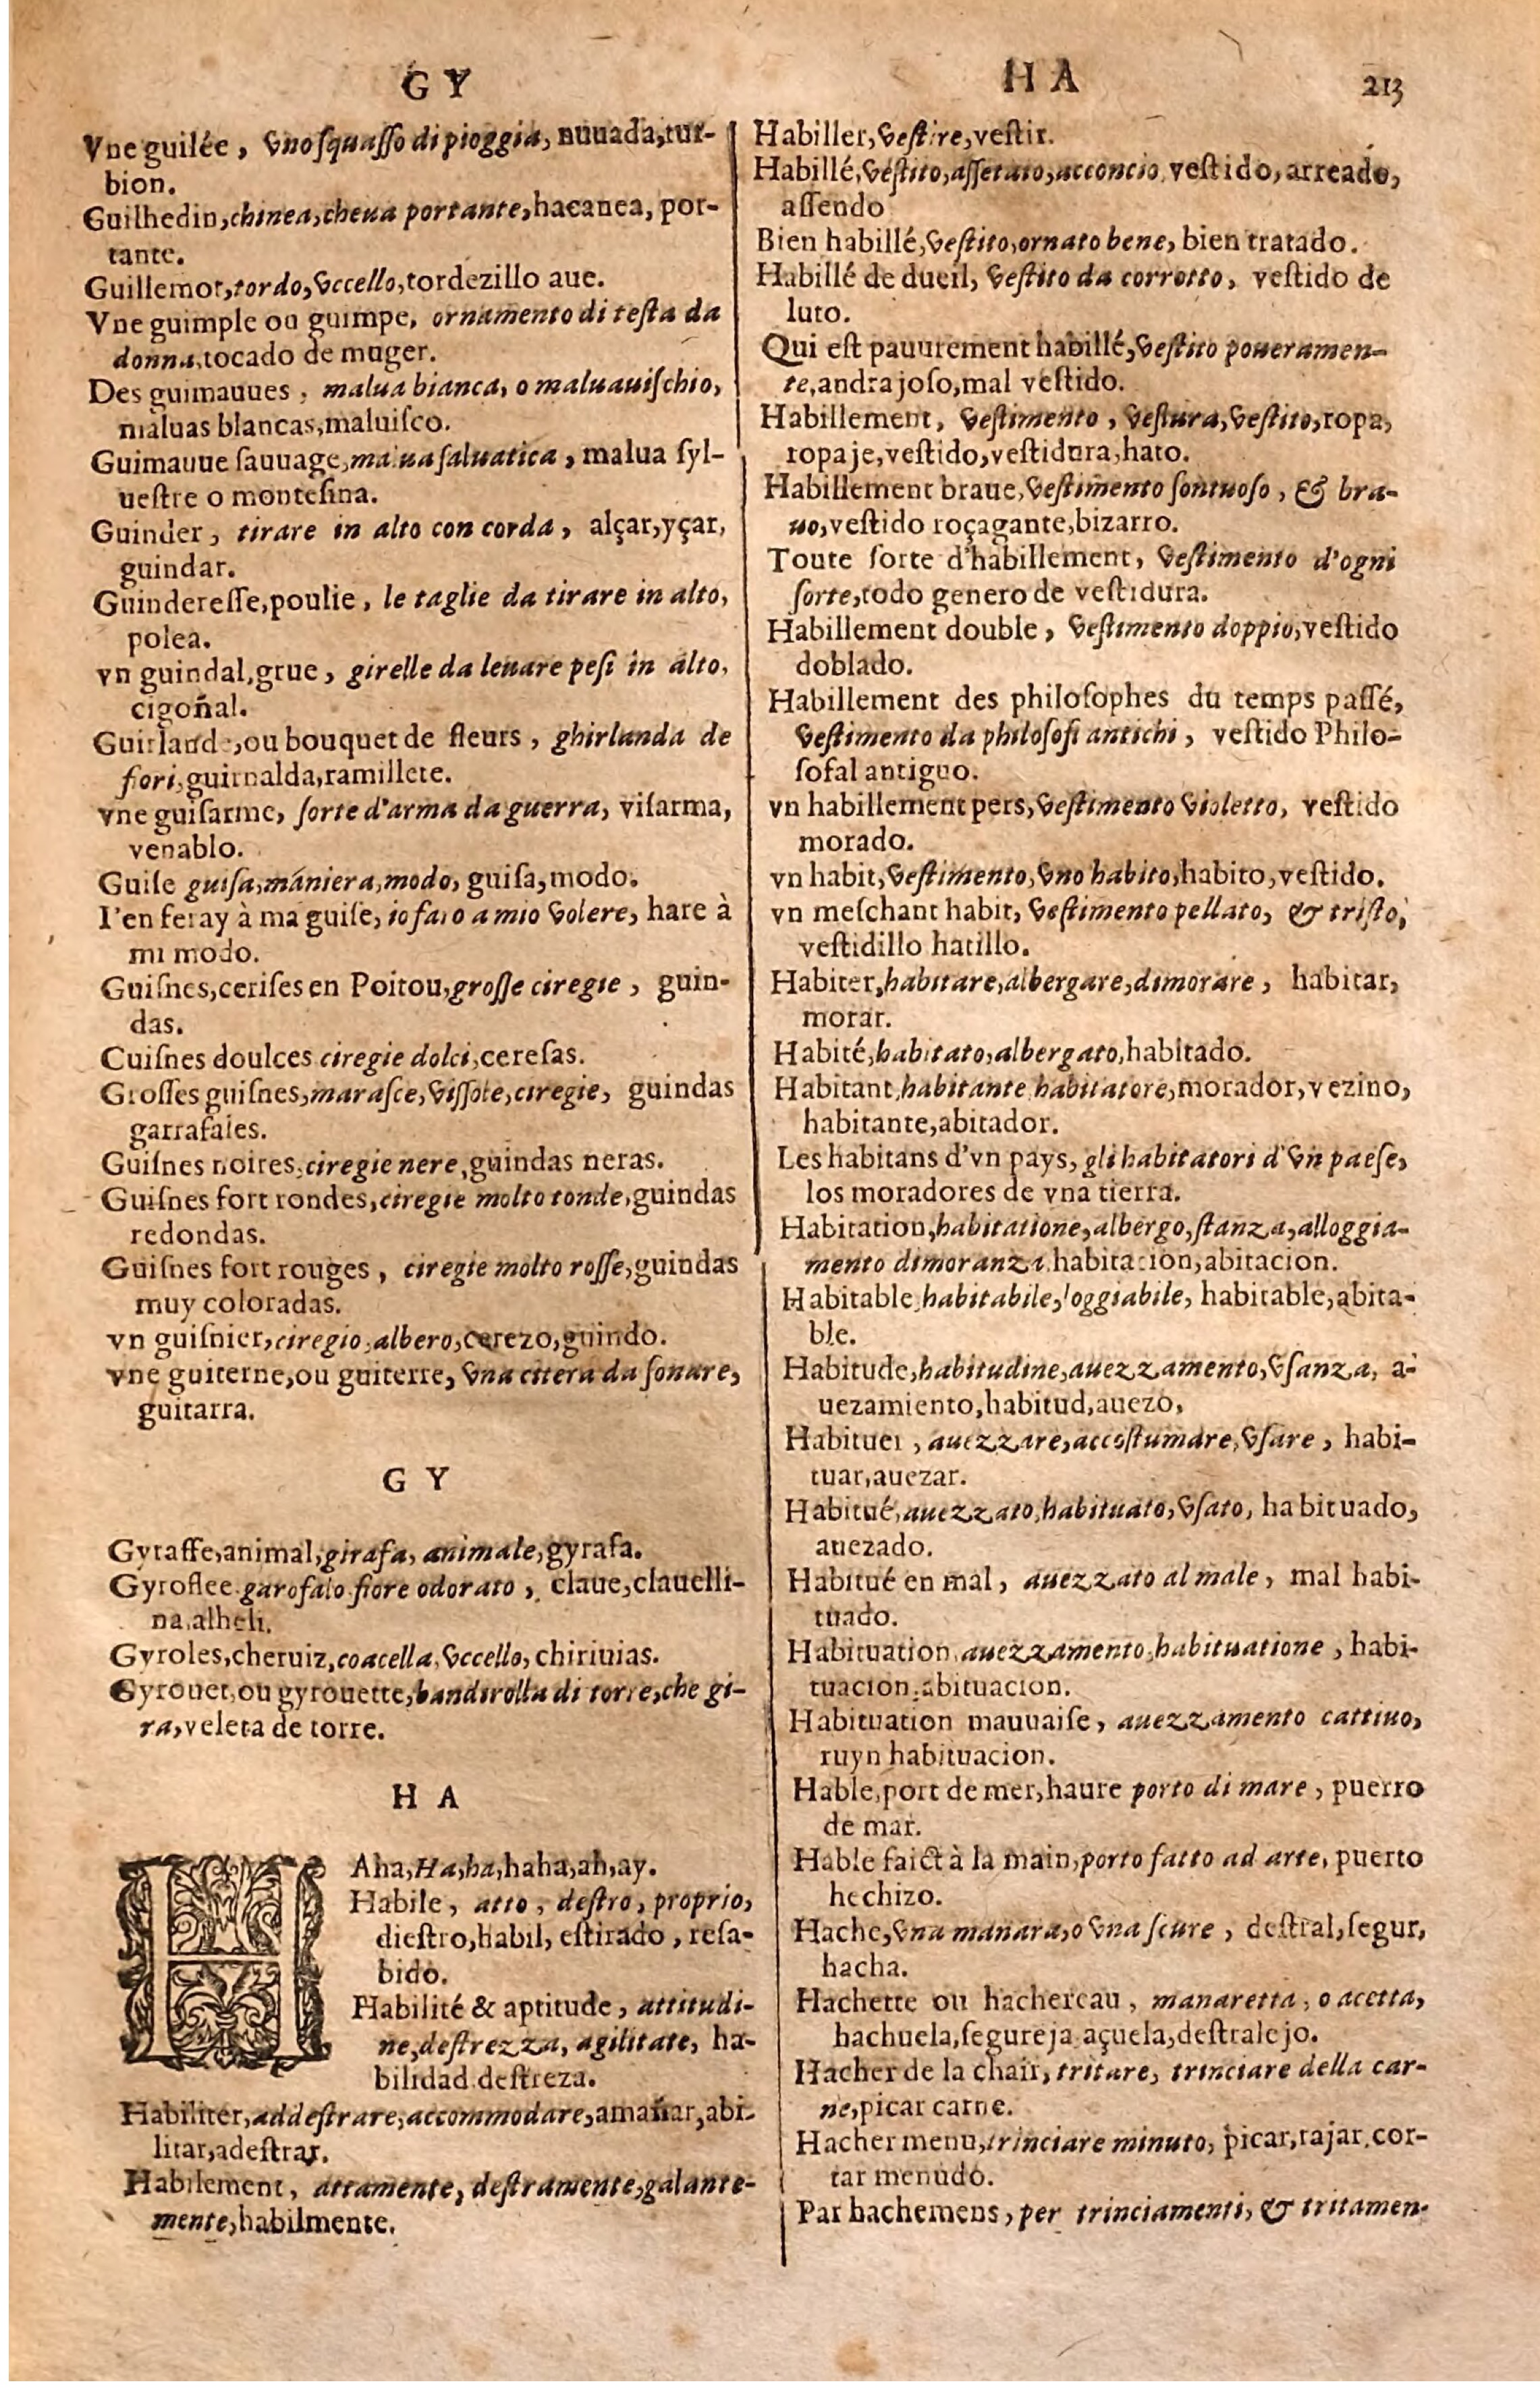 GY
HA 213
Vne guilée, vno ſquaſſo di pioggia, nuuada, tur-
bion.
Guilhedin, chinea, cheua portante, hacanea, por-
tante.
Guillemot, tordo, vccello, tordezillo aue.
Vne guimple ou guimpe, ornamento di teſta da
donna, tocado de muger.
Des guimauues, malua bianca, o maluauiſchio,
maluas blancas, maluiſco.
Guimauue ſauuage, malua ſaluatica, malua ſyl-
ueſtre o monteſina.
Guinder, tirare in alto con corda, alçar, yçar,
guindar.
Guindereſſe, poulie, le taglie da tirare in alto,
polea.
vn guindal, grue, girelle da leuare peſi in alto,
cigoñal.
Guirlande, ou bouquet de fleurs, ghirlanda de
fiori, guirnalda, ramillete.
vne guiſarme, ſorte d'arma da guerra, viſarma,
venablo.
Guiſe guiſa, maniera, modo, guiſa, modo.
I'en feray à ma guiſe, io faro a mio volere, hare à
mi modo.
Guiſnes, ceriſes en Poitou, groſſe ciregie, guin-
das.
Cuiſnes doulces ciregie dolci, cereſas.
Groſſes guiſnes, maraſce, viſſole, ciregie, guindas
garrafales.
Guiſnes noires, ciregie nere, guindas neras.
Guiſnes fort rondes, ciregie molto tonde, guindas
redondas.
Guiſnes fort rouges, ciregie molto roſſe, guindas
muy coloradas.
vn guiſnier, ciregio, albero, cerezo, guindo.
vne guiterne, ou guiterre, vna citera da ſonare,
guitarra.
GY
Gyraffe, animal, girafa, animale, gyrafa.
Gyroflee garofalo fiore odorato, claue, clauelli-
na, alheli.
Gyroles, cheruiz, coacella, vccello, chiriuias.
Gyrouet, ou gyrouette, bandirolla di torre, che gi-
ra, veleta de torre.
HA
Aha, Ha, ha, haha, ah, ay.
Habile, atto, deſtro, proprio,
dieſtro, habil, eſtirado, reſa-
bido.
Habilité & aptitude, attitudi-
ne, deſtrezza, agilitate, ha-
bilidad deſtreza.
Habiliter, addeſtrare, accommodare, amañar, abi-
litar, adeſtrar.
Habilement, attamente, deſtramente, galante-
mente, habilmente.
Habiller, veſtire, veſtir.
Habillé, veſtito, aſſetato, acconcio, veſtido, arreado,
aſſendo
Bien habillé, veſtito, ornato bene, bien tratado.
Habillé de dueil, veſtito da corrotto, veſtido de
luto.
Qui eſt pauurement habillé, veſtito poueramen-
te, andrajoſo, mal veſtido.
Habillement, veſtimento, veſtura, veſtito, ropa,
ropaje, veſtido, veſtidura, hato.
Habillement braue, veſtimento ſontuoſo, & bra-
uo, veſtido roçagante, bizarro.
Toute ſorte d'habillement, veſtimento d'ogni
ſorte, todo genero de veſtidura.
Habillement double, veſtimento doppio, veſtido
doblado.
Habillement des philoſophes du temps paſſé,
veſtimento da philoſofi antichi, veſtido Philo-
ſofal antiguo.
vn habillement pers, veſtimento violetto, veſtido
morado.
vn habit, veſtimento, vno habito, habito, veſtido.
vn meſchant habit, veſtimento pellato, & triſto,
veſtidillo hatillo.
Habiter, habitare, albergare, dimorare, habitar,
morar.
Habité, habitato, albergato, habitado.
Habitant, habitante habitatore, morador, vezino,
habitante, abitador.
Les habitans d'vn pays, gli habitatori d'vn paeſe,
los moradores de vna tierra.
Habitation, habitatione, albergo, ſtanza, alloggia-
mento dimoranza, habitacion, abitacion.
Habitable, habitabile, loggiabile, habitable, abita-
ble.
Habitude, habitudine, auezzamento, vſanza, a-
uezamiento, habitud, auezo,
Habituer, auezzare, accoſtumare, vſare, habi-
tuar, auezar.
Habitué, auezzato, habituato, vſato, habituado,
auezado.
Habitué en mal, auezzato al male, mal habi-
tuado.
Habituation, auezzamento, habituatione, habi-
tuacion, abituacion.
Habituation mauuaiſe, auezzamento cattiuo,
ruyn habituacion.
Hable, port de mer, haure porto di mare, puerro
de mar.
Hable faict à la main, porto fatto ad arte, puerto
hechizo.
Hache, vna manara, o vna ſcure, deſtral, ſegur,
hacha.
Hachette ou hachereau, manaretta, o acetta,
hachuela, ſegureja açuela, deſtralejo.
Hacher de la chair, tritare, trinciare della car-
ne, picar carne.
Hacher menu, trinciare minuto, picar, tajar, cor-
tar menudo.
Par hachemens, per trinciamenti, & tritamen-